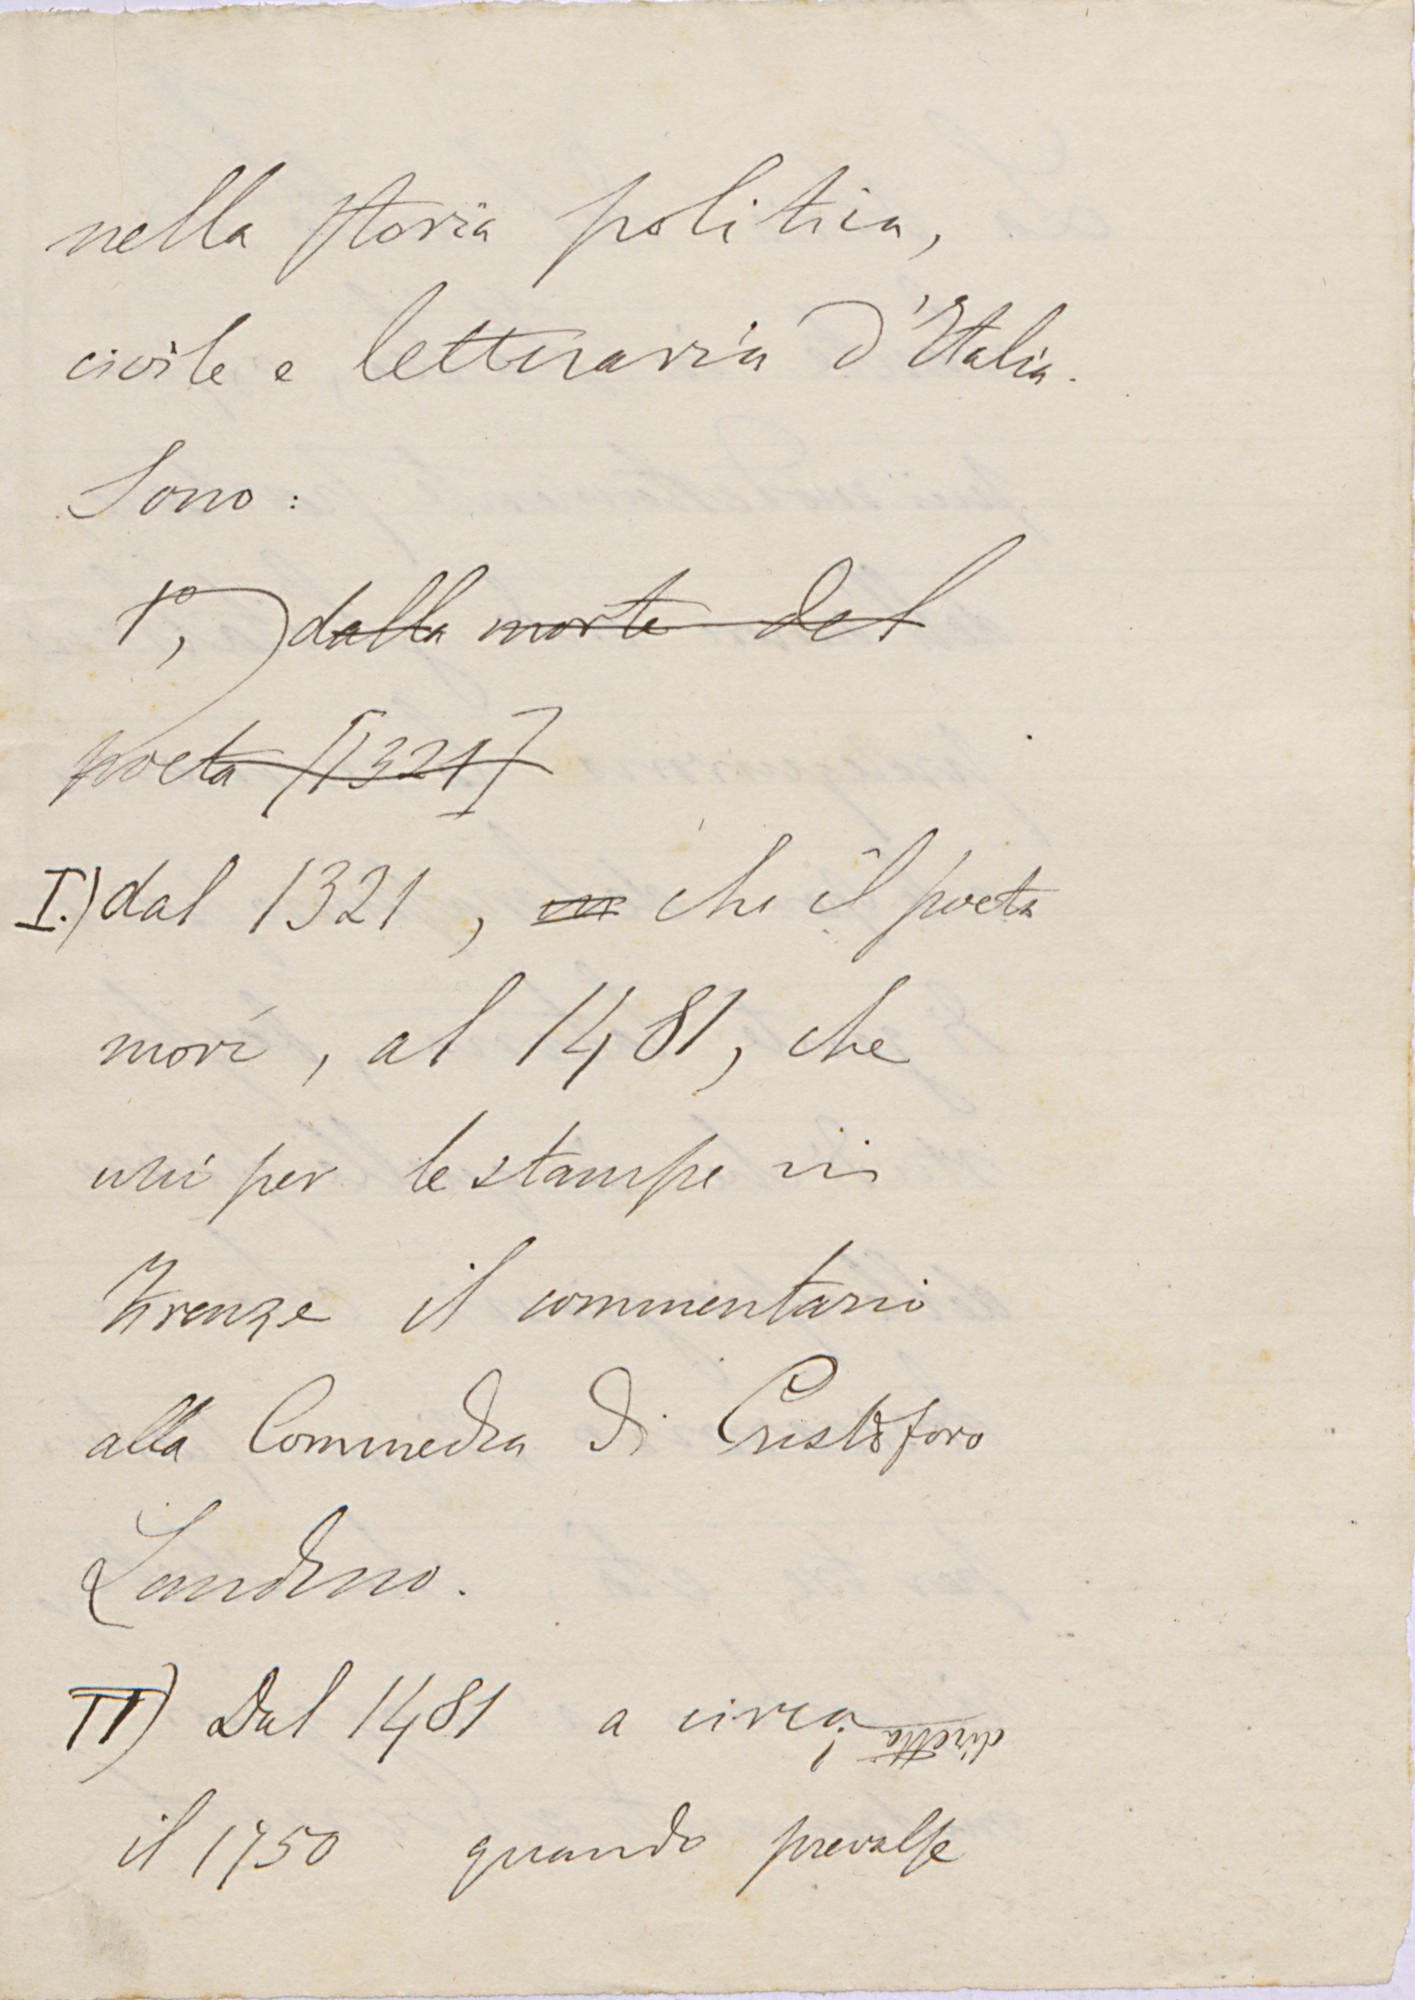 nella storia politica,
civile e letteraria d'Italia.
Sono:
1º, dalla morte del
poeta [1321]
I.) dal 1321, in che il poeta
morì, al 1481, che
uscì per le stampe in
Firenze il commentario
alla Commedia di Cristoforo
Landino.
II) Dal 1481 a circa
diretta
il 1750 quando prevalse